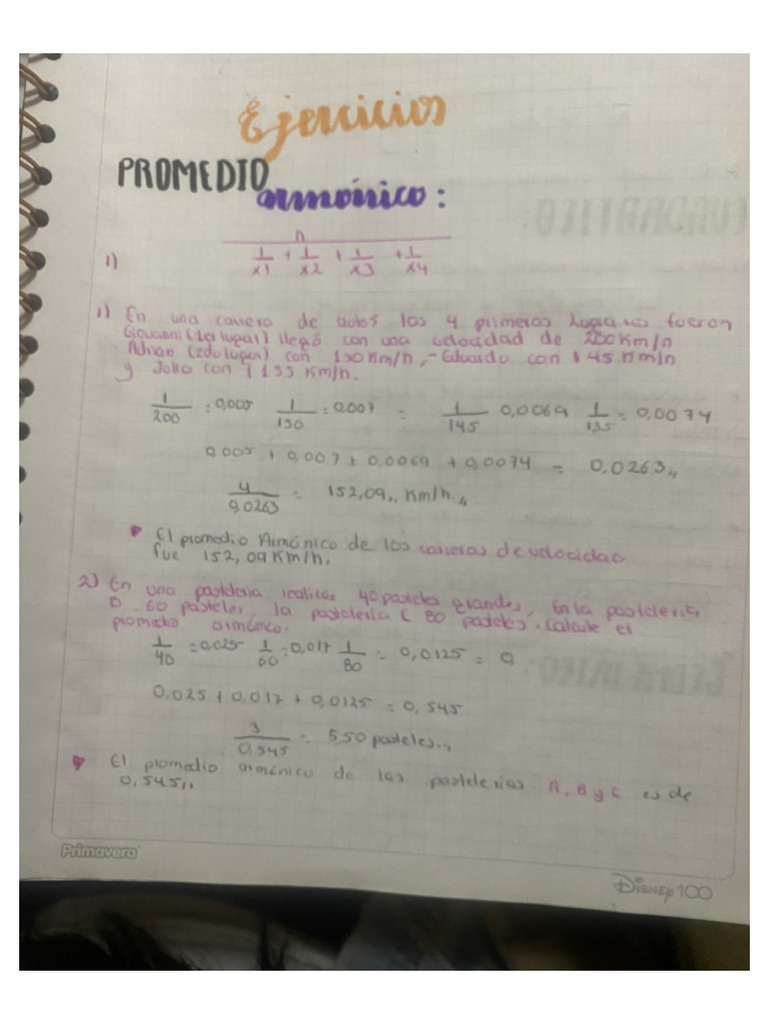 Ejercicios
PROMEDIO
armónico:
n
1) 1/x1 + 1/x2 + 1/x3 + 1/x4
1) En una carrera de autos los 4 primeros lugares fueron
Giovanni (1er lugar) llegó con una velocidad de 200 Km/h
Adrian (2do lugar) con 130 Km/h, - Eduardo con 145 Km/h
y Julio con 135 Km/h.
1/200 = 0,005 1/130 = 0,007 = 1/145 0,0069 1/135 = 0,0074
0,005 + 0,007 + 0,0069 + 0,0074 = 0,0263,,
4/0,0263 = 152,09,, Km/h,,
El promedio Armónico de los carreras de velocidad
fue 152,09 Km/h.
2) En una pasteleria realizan 40 pasteles grandes, En la pasteleria
B 60 pasteles, la pasteleria C 80 pasteles. Calcule el
promedio armónico.
1/40 = 0,025 1/60 = 0,017 1/80 = 0,0125 = 9
0,025 + 0,017 + 0,0125 = 0,545
3/0,545 = 5,50 pasteles..,
El promedio armónico de las pastelerias A, B y C es de
0,545,,
Primavera
Disney 100